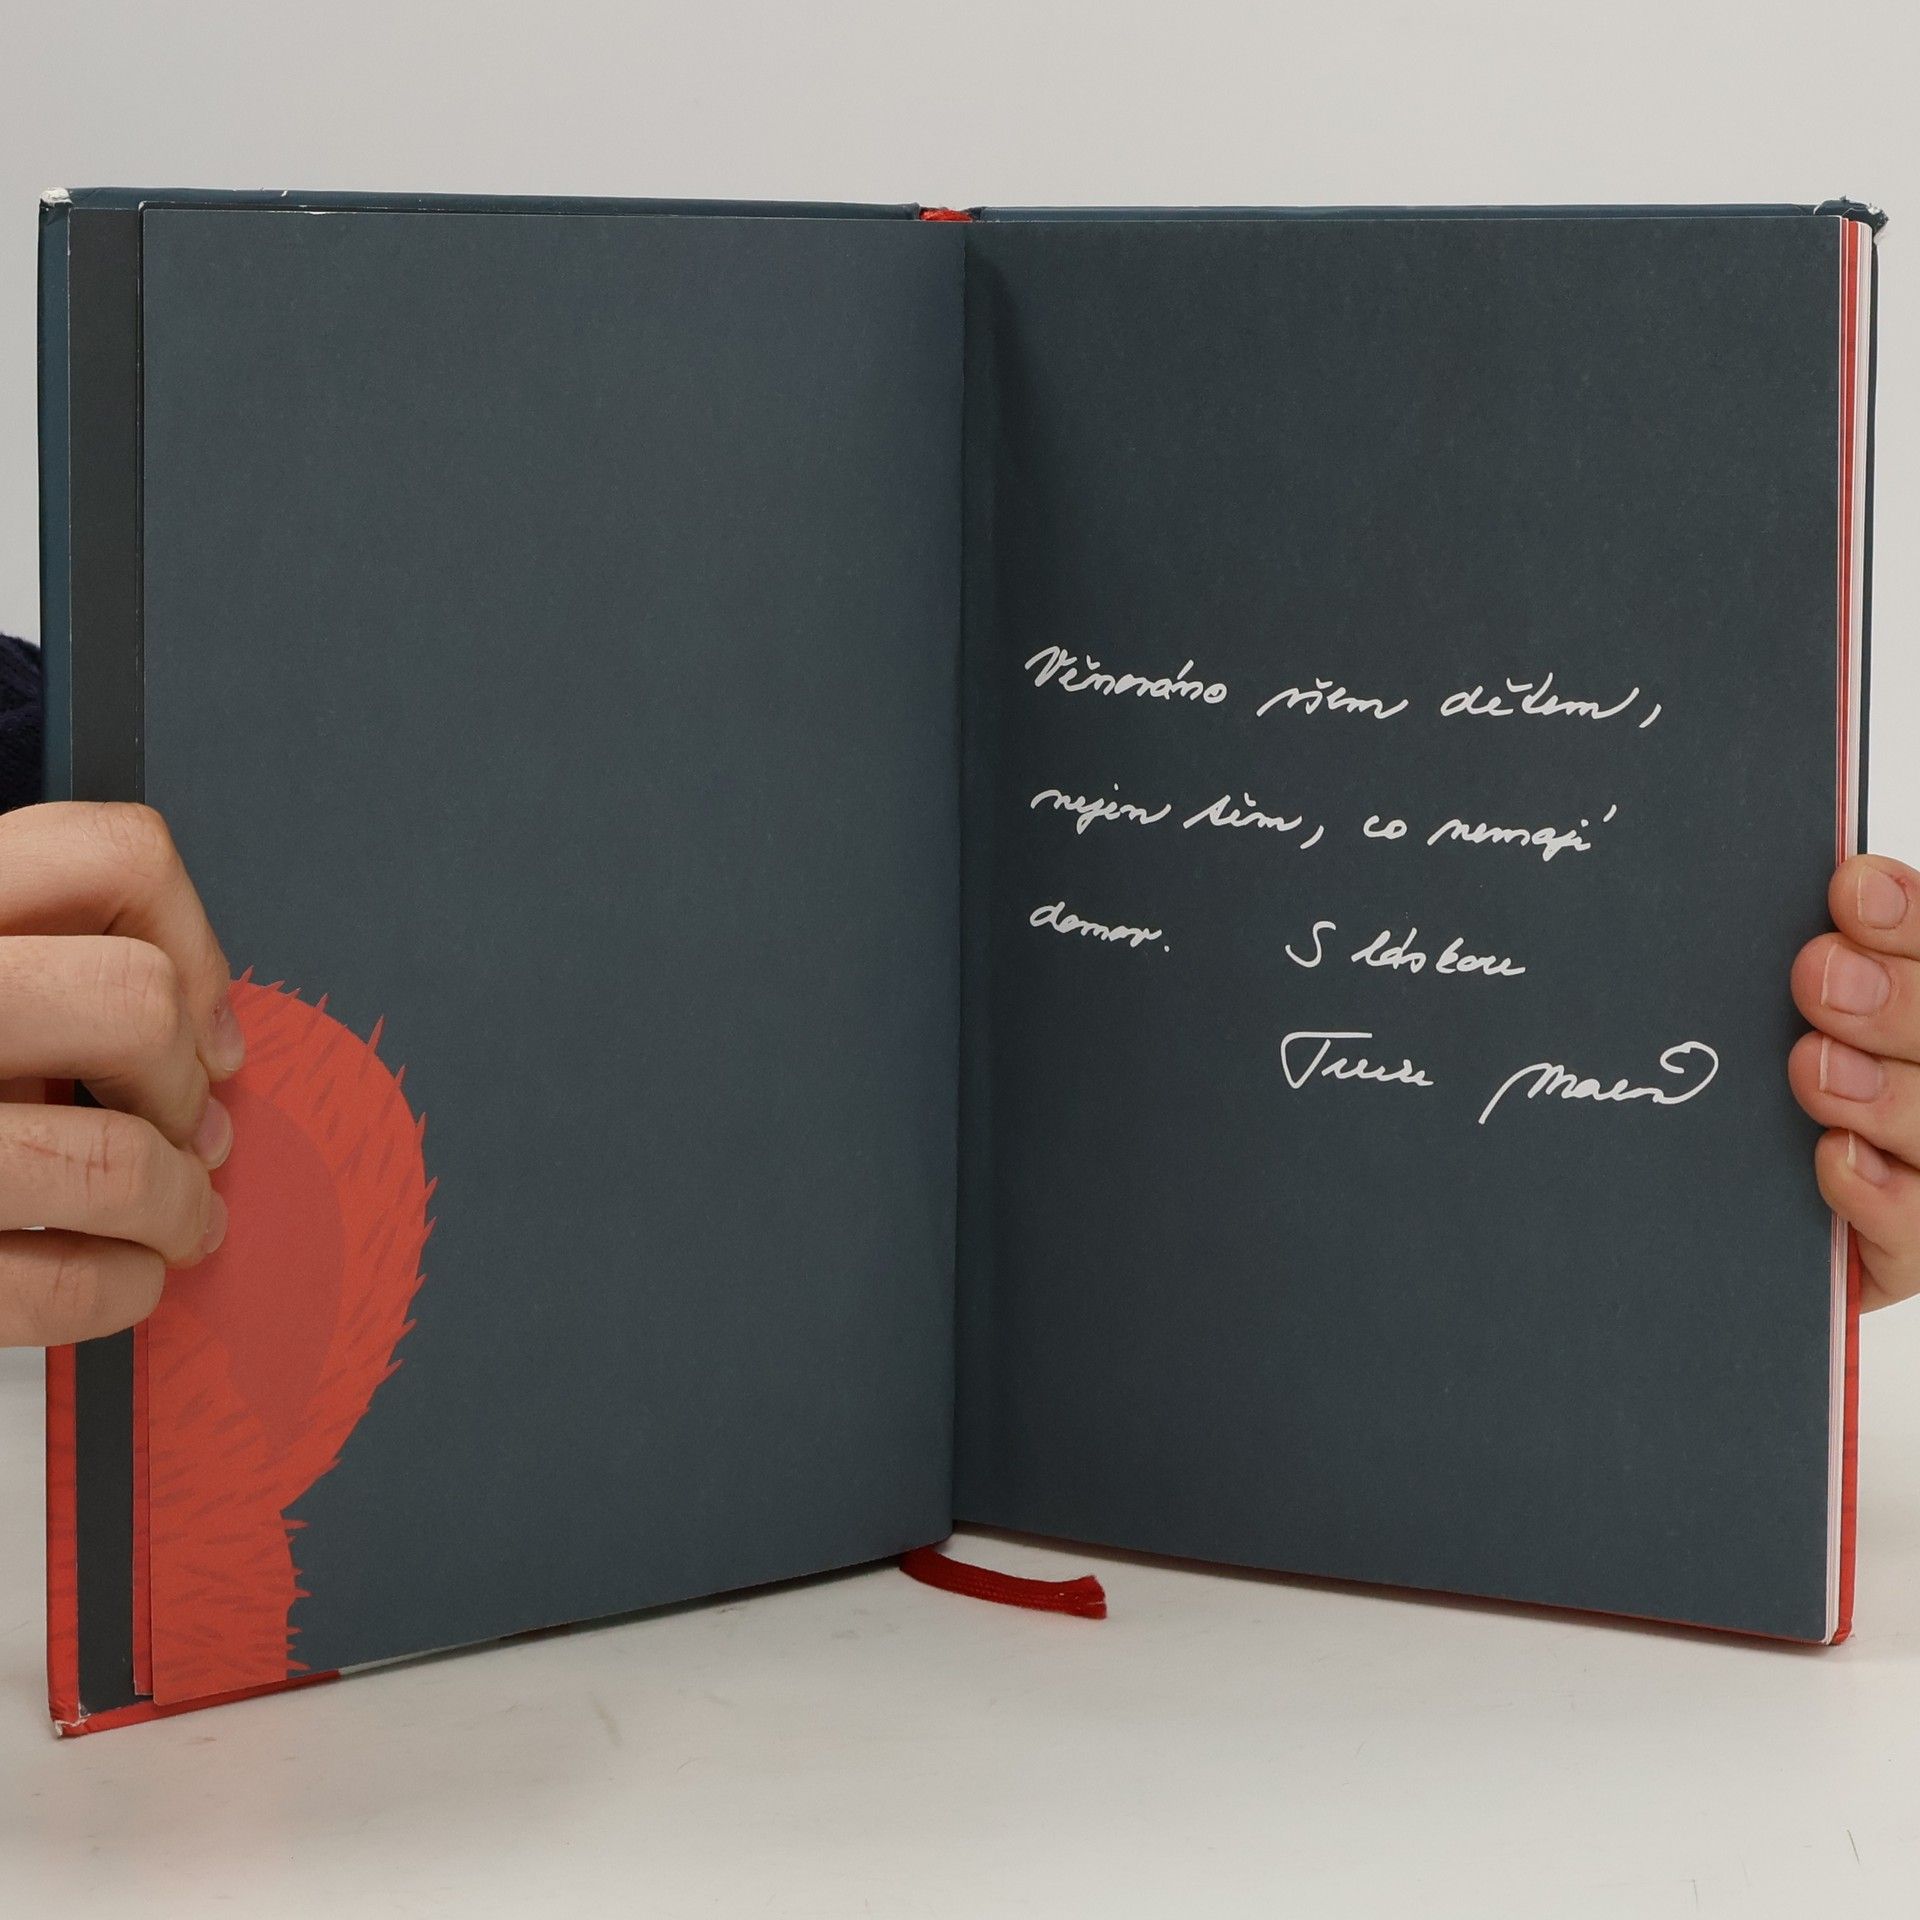 Věnováno všem dětem,
nejen těm, co nemají
domov. S láskou